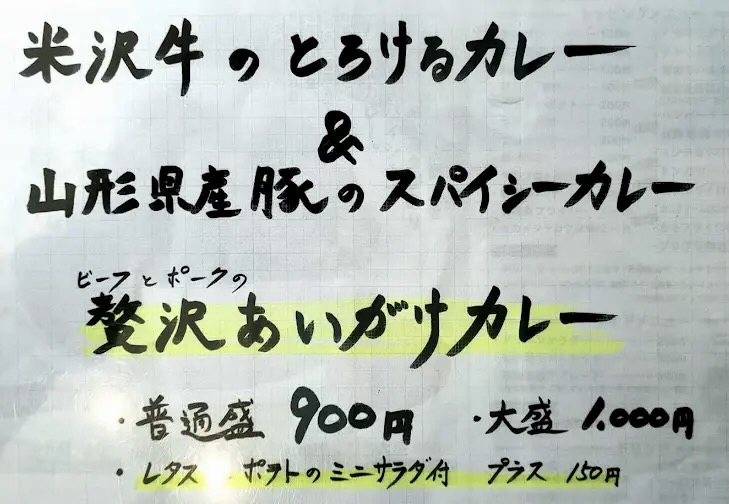 米沢牛のとろけるカレー
&
山形県産豚のスパイシーカレー
ビーフとポークの
贅沢あいがけカレー
・普通盛 900円 ・大盛 1,000円
・レタス ポテトのミニサラダ付 プラス 150円